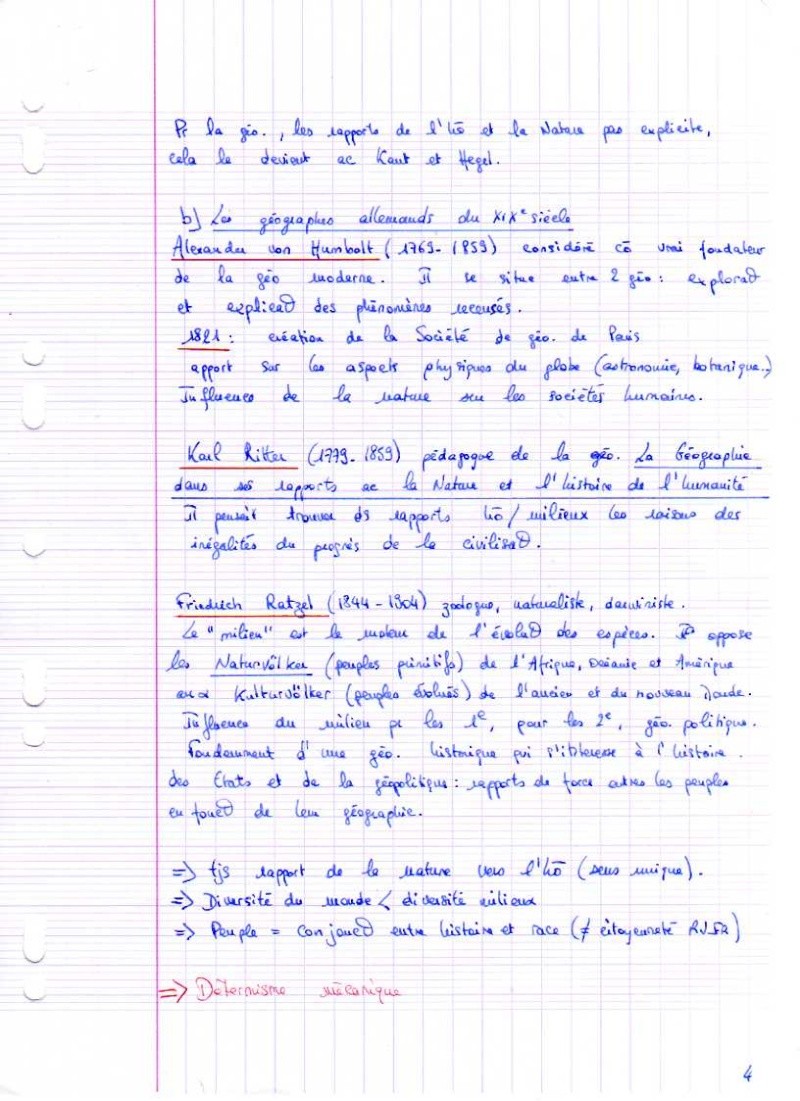 Pr la géo., les rapports de l'hō et la Nature pas explicite,
cela le devient ac Kant et Hegel.
b) Les géographes allemands du XIXe siècle
Alexander von Humbolt (1769-1859) considéré cō vrai fondateur
de la géo moderne. Il se situe entre 2 géo : explora⁰
et explica⁰ des phénomènes recensés.
1821 : création de la Société de géo. de Paris
apport sur les aspects physiques du globe (astronomie, botanique..)
Influence de la nature sur les sociétés humaines.
Karl Ritter (1779-1859) pédagogue de la géo. La Géographie
dans ses rapports ac la Nature et l'histoire de l'humanité
Il pensait trouver ds rapports hō/milieux les raisons des
inégalités du progrès de la civilisa⁰.
Friedrich Ratzel (1844-1904) zoologue, naturaliste, darwiniste.
Le "milieu" est le moteur de l'évolu⁰ des espèces. Il oppose
les Naturvölker (peuples primitifs) de l'Afrique, Océanie et Amérique
aux Kulturvölker (peuples évolués) de l'ancien et du nouveau Monde.
Influence du milieu pr les 1e, pour les 2e, géo. politique.
Fondemment d'une géo. historique qui s'intéresse à l'histoire
des Etats et de la géopolitique : rapports de force entres les peuples
en fonct⁰ de leur géographie.
=> tjs rapport de la nature vers l'hō (sens unique).
=> Diversité du monde < diversité milieux
=> Peuple = conjonct⁰ entre histoire et race (≠ citoyenneté
=> Détermisme mécanique
4